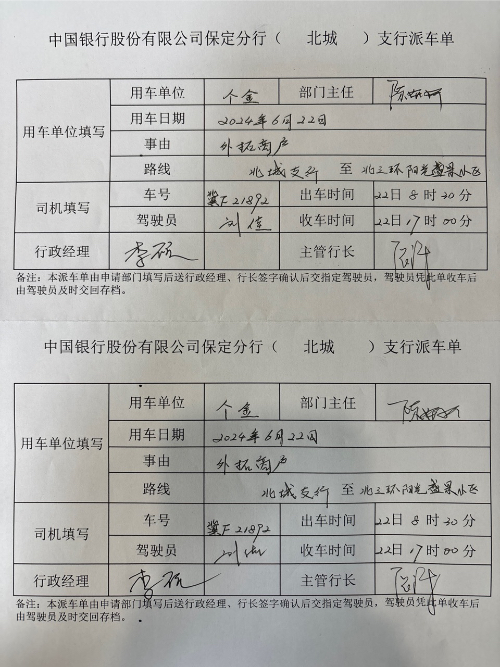 中国银行股份有限公司保定分行（ 北城 ）支行派车单
用车单位填写 用车单位 个金 部门主任
用车日期 2024年6月22日
事由 外拓商户
路线 北城支行 至 北三环阳光盛景小区
司机填写 车号 冀F21892 出车时间 22日8时30分
驾驶员 刘佳 收车时间 22日17时00分
行政经理 李硕 主管行长
备注：本派车单由申请部门填写后送行政经理、行长签字确认后交指定驾驶员，驾驶员凭此单收车后
由驾驶员及时交回存档。
中国银行股份有限公司保定分行（ 北城 ）支行派车单
用车单位填写 用车单位 个金 部门主任
用车日期 2024年6月22日
事由 外拓商户
路线 北城支行 至 北三环阳光盛景小区
司机填写 车号 冀F21892 出车时间 22日8时30分
驾驶员 刘佳 收车时间 22日17时00分
行政经理 李硕 主管行长
备注：本派车单由申请部门填写后送行政经理、行长签字确认后交指定驾驶员，驾驶员凭此单收车后
由驾驶员及时交回存档。